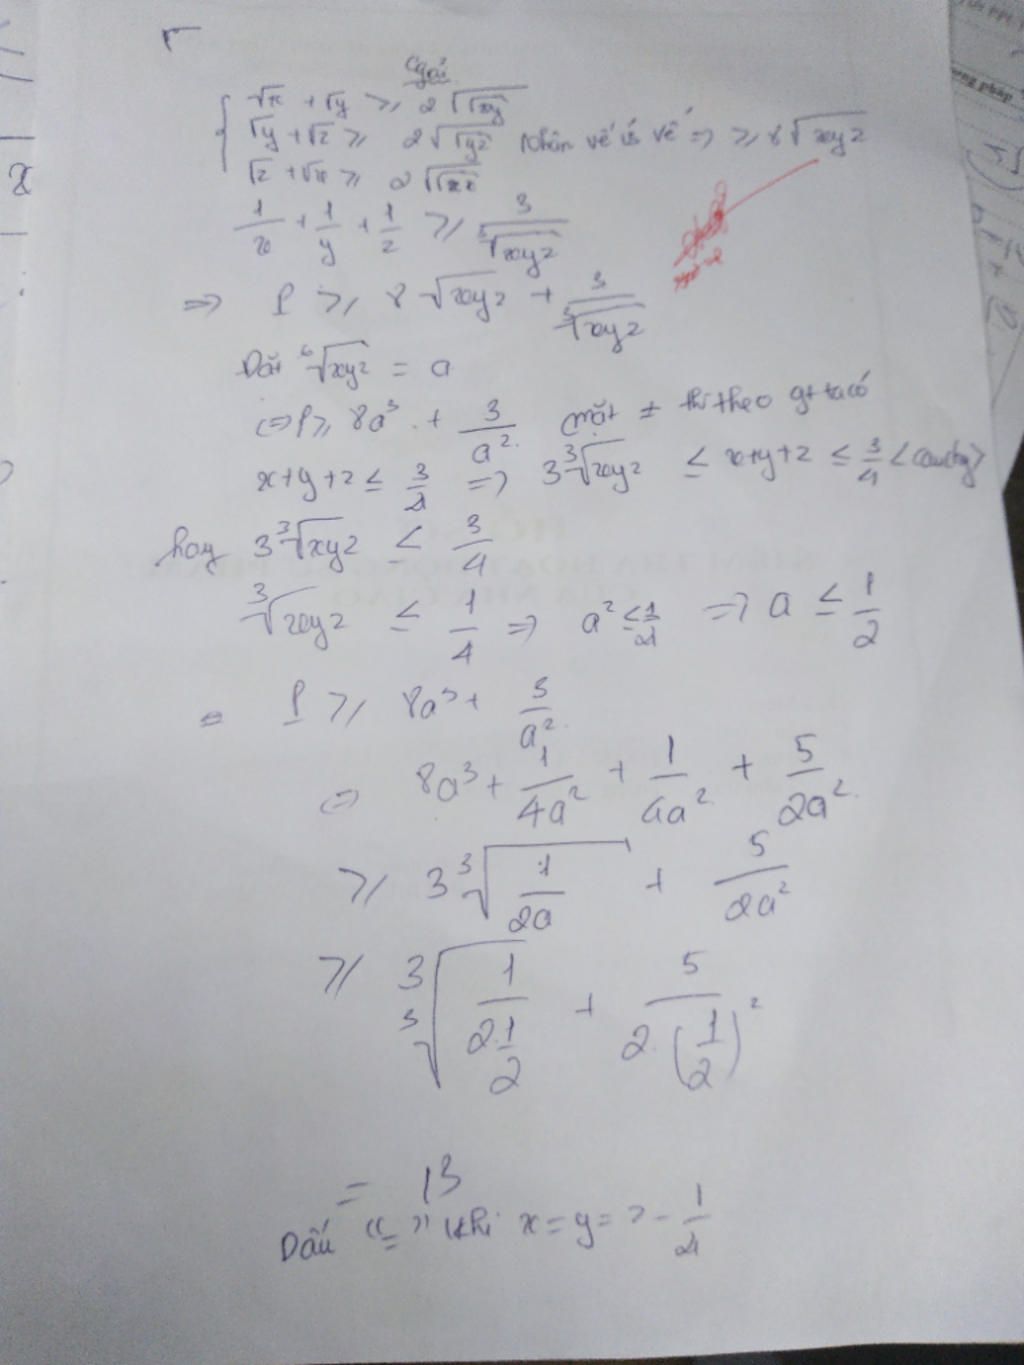 √x + √y ≥ 2√(√xy)
√y + √z ≥ 2√(√yz) Nhân vế với vế => ≥ 8√xyz
√z + √x ≥ 2√(√xz)
1/x + 1/y + 1/z ≥ 3/∛xyz
=> P ≥ 8√xyz + 3/∛xyz
Đặt ⁶√xyz = a
<=> P ≥ 8a³ + 3/a² Mặt ≠ thì theo gt ta có
x+y+z ≤ 3/4 => 3∛xyz ≤ x+y+z ≤ 3/4 <cauchy>
hay 3∛xyz ≤ 3/4
∛xyz ≤ 1/4 => a² ≤ 1/4 => a ≤ 1/2
= P ≥ 8a³ + 3/a²
<=> 8a³ + 1/4a² + 1/4a² + 5/2a²
≥ 3∛(1/2a) + 5/2a²
≥ 3∛(1/(2.1/2)) + 5/(2.(1/2)²)
= 13
Dấu "=" khi x = y = z = 1/4